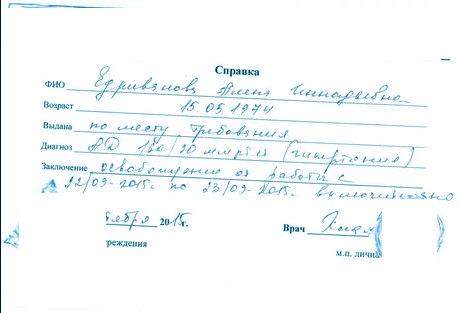 Справка
ФИО Едривянова Алена Геннадьевна
Возраст 15.05.1974
Выдана по месту требования
Диагноз АД 180/90 мм рт.ст (гипертония)
Заключение освобождение от работы с
22/09-2015г. по 23/09-2015г. включительно
тября 2015г.
Врач
реждения
м.п. лична